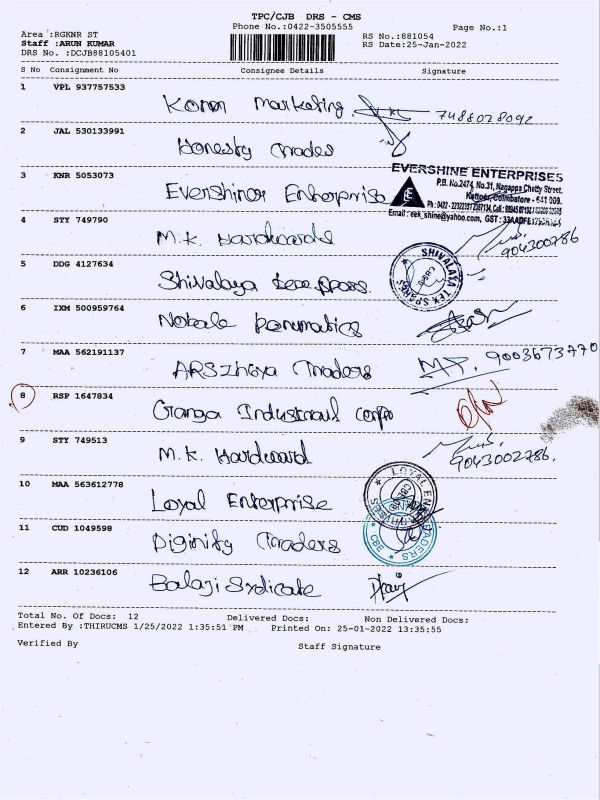 TPC/CJB DRS - CMS
Phone No.:0422-3505555
Page No.:1
Area :RGKNR ST
Staff :ARUN KUMAR
DRS No. :DCJB88105401
RS No.:881054
RS Date:25-Jan-2022
S No Consignment No Consignee Details Signature
1 VPL 937757533
Marketing
2 JAL 530133991
Honesty Trades
3 KNR 5053073
Evershiner Enterprise
EVERSHINE ENTERPRISES
P.B. No.2474, No.31, Nagappa Chetty Street,
Kattoor, Coimbatore - 641 009.
Email : eek_shine@yahoo.com, GST :
4 STY 749790
M.K. Hardwards
904300286
5 DDG 4127634
Shivalaya
SHIVALAYA TEK SPARES
CBE-9
6 IXM 500959764
7 MAA 562191137
Traders
9003673770
8 RSP 1647834
Ganga Industrial corpo
9 STY 749513
M.K. Hardward
9043002786.
10 MAA 563612778
Loyal Enterprise
LOYAL
11 CUD 1049598
Diginity Traders
CBE
12 ARR 10236106
Balaji Sydicate
Total No. Of Docs: 12 Delivered Docs: Non Delivered Docs:
Entered By :THIRUCMS 1/25/2022 1:35:51 PM Printed On: 25-01-2022 13:35:55
Verified By Staff Signature